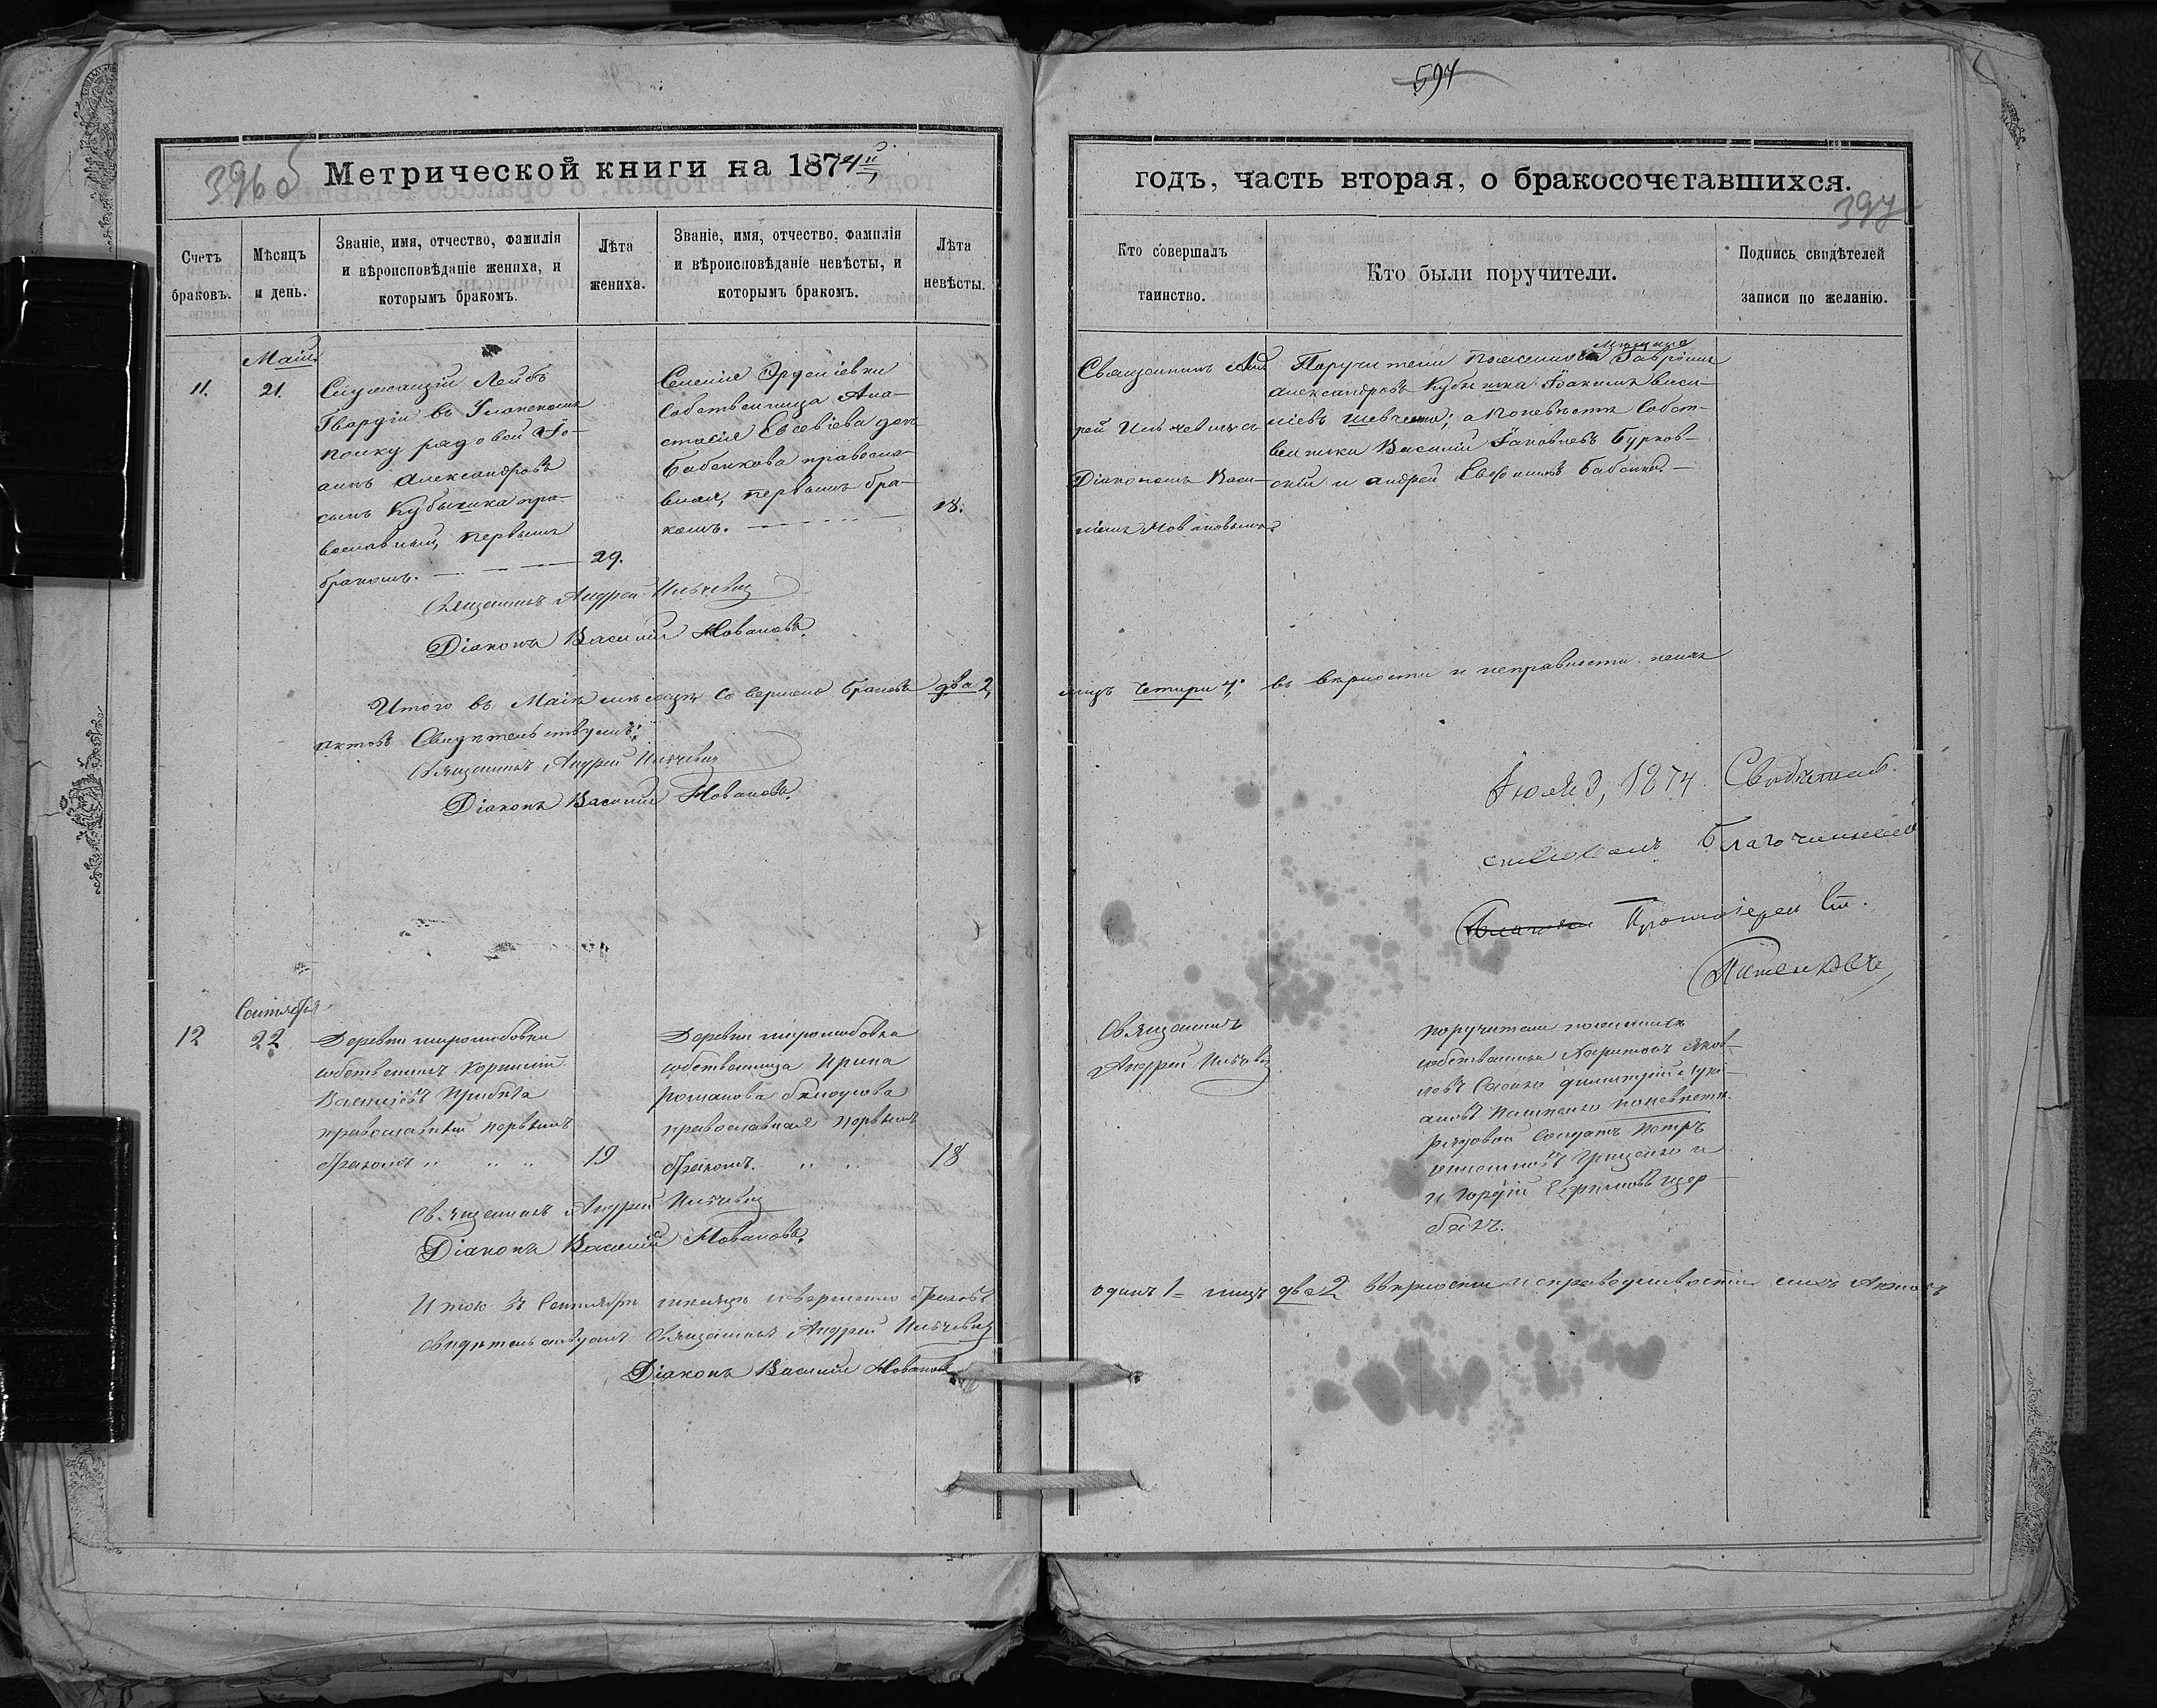 597
396 б
Метрической книги на 1874й
годъ, часть вторая, о бракосочетавшихся.
397
Счетъ
браковъ.
Мѣсяцъ
и день.
Званіе, имя, отчество, фамилія
и вѣроисповѣданіе жениха, и
которымъ бракомъ.
Лѣта
жениха.
Званіе, имя, отчество, фамилія
и вѣроисповѣданіе невѣсты, и
которымъ бракомъ.
Лѣта
невѣсты.
Кто совершалъ
таинство.
Кто были поручители.
Подпись свидѣтелей
записи по желанію.
11.
Маія
21.
Служащій Лейбъ
Гвардіи въ Уланскомъ
полку рядовой Іо-
аннъ Александровъ
сынъ Кубышка пра-
вославный, первымъ
бракомъ.
29.
Селенія
собственница Ана-
стасія Евсевіева дочь
Бабенкова правосла-
вная, первымъ бра-
комъ.
18.
Священникъ Анд-
рей Ильчевичъ съ
Діакономъ Васи-
ліемъ
Поручители по женихѣ Гавріилъ
Александровъ Кубышка Іоакимъ Васи-
ліевъ Шевченко; а по невѣстѣ собст-
венники Василій Іаковлевъ Бурков-
скій и Андрей Бабенко.
Священникъ Андрей Ильчевичъ
Діаконъ Василій
Итого въ Маіѣ мѣсяцѣ совершено браковъ два 2,
лицъ четыри 4; въ вѣрности и исправности
актовъ Свидѣтельствуемъ:
Священникъ Андрей Ильчевичъ
Діаконъ Василій
Іюля 3, 1874. Свидѣтель-
ствовалъ Благочинный
Протоіерей Ст.
12
Сентября
22
Деревни Широлюбовки
собственникъ Корнилій
Василіевъ Прибѣга
православный первымъ
бракомъ
19
Деревни Широлюбовки
собственница Ирина
Романова Бѣлоусова
православная первымъ
бракомъ.
18
Священникъ
Андрей Ильчевичъ
поручители по женихѣ
собственники Харитонъ Яков-
левъ
по невѣстѣ
рядовой солдатъ Петръ
Грищенко и
и Гордій Ефимовъ Щер-
бакъ.
Священникъ Андрей Ильчевичъ
Діаконъ Василій
Итого въ Сентябрѣ мѣсяцѣ совершено браковъ
одинъ 1 лицъ два 2 вѣрности и справедливости сихъ Актовъ
свидѣтельствуемъ Священникъ Андрей Ильчевичъ
Діаконъ Василій